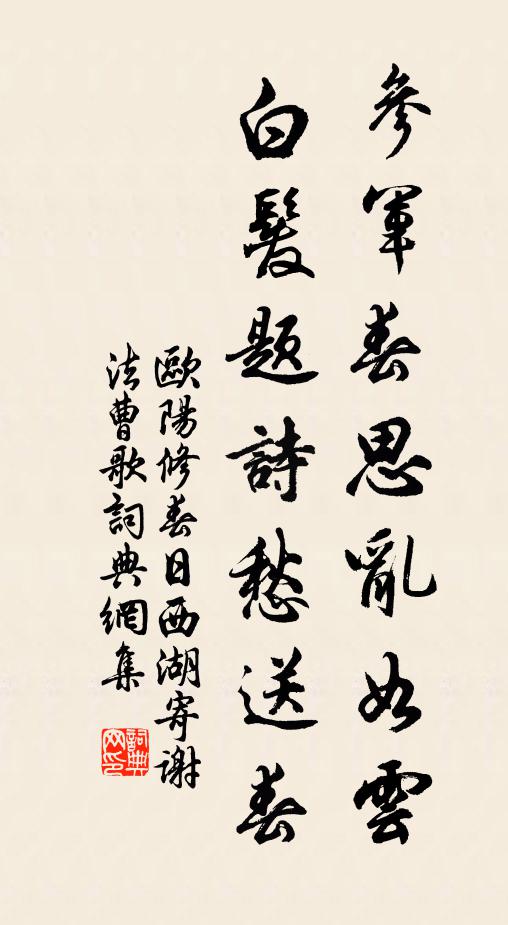 參軍春思亂如雲
白髮題詩愁送春
歐陽修春日西湖寄謝
法曹歌詞典網集
詞典网印